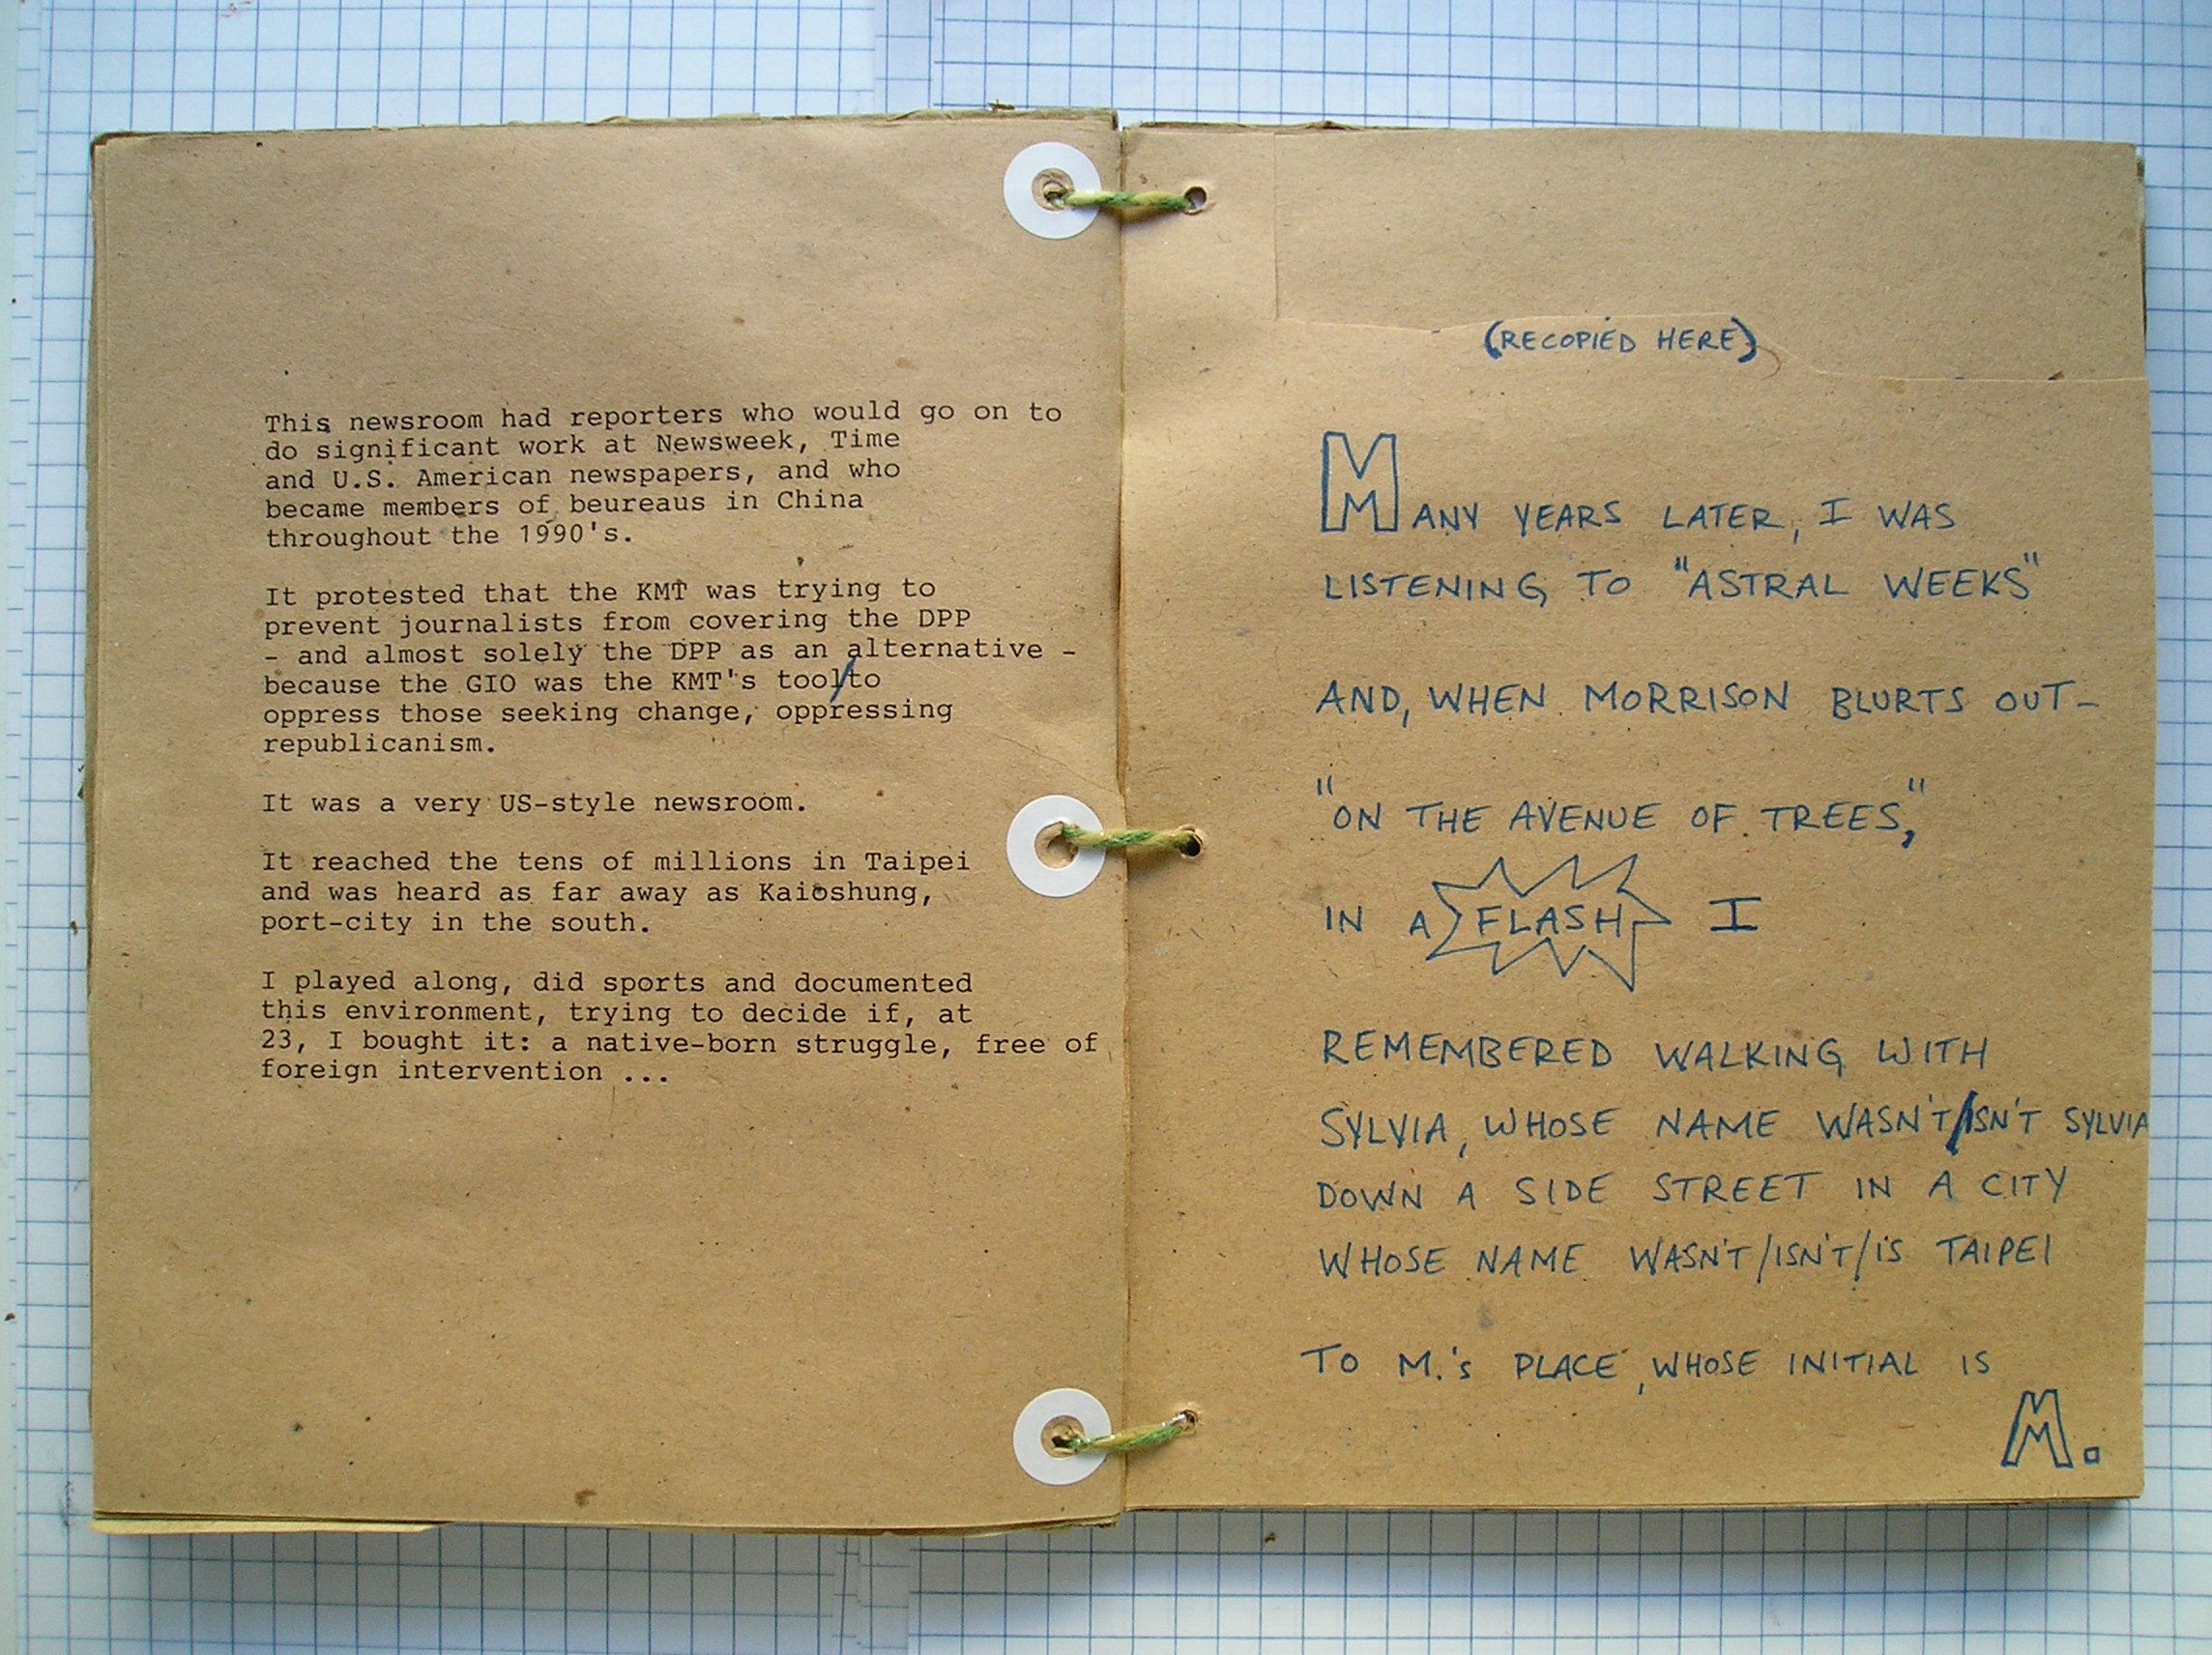 This newsroom had reporters who would go on to
do significant work at Newsweek, Time
and U.S. American newspapers, and who
became members of beureaus in China
throughout the 1990's.
It protested that the KMT was trying to
prevent journalists from covering the DPP
- and almost solely the DPP as an alternative -
because the GIO was the KMT's tool/to
oppress those seeking change, oppressing
republicanism.
It was a very US-style newsroom.
It reached the tens of millions in Taipei
and was heard as far away as Kaioshung,
port-city in the south.
I played along, did sports and documented
this environment, trying to decide if, at
23, I bought it: a native-born struggle, free of
foreign intervention ...
(RECOPIED HERE)
MANY YEARS LATER, I WAS
LISTENING TO "ASTRAL WEEKS"
AND, WHEN MORRISON BLURTS OUT-
"ON THE AVENUE OF TREES,"
IN A FLASH I
REMEMBERED WALKING WITH
SYLVIA, WHOSE NAME WASN'T/ISN'T SYLVIA
DOWN A SIDE STREET IN A CITY
WHOSE NAME WASN'T/ISN'T/IS TAIPEI
TO M.'s PLACE, WHOSE INITIAL IS
M.